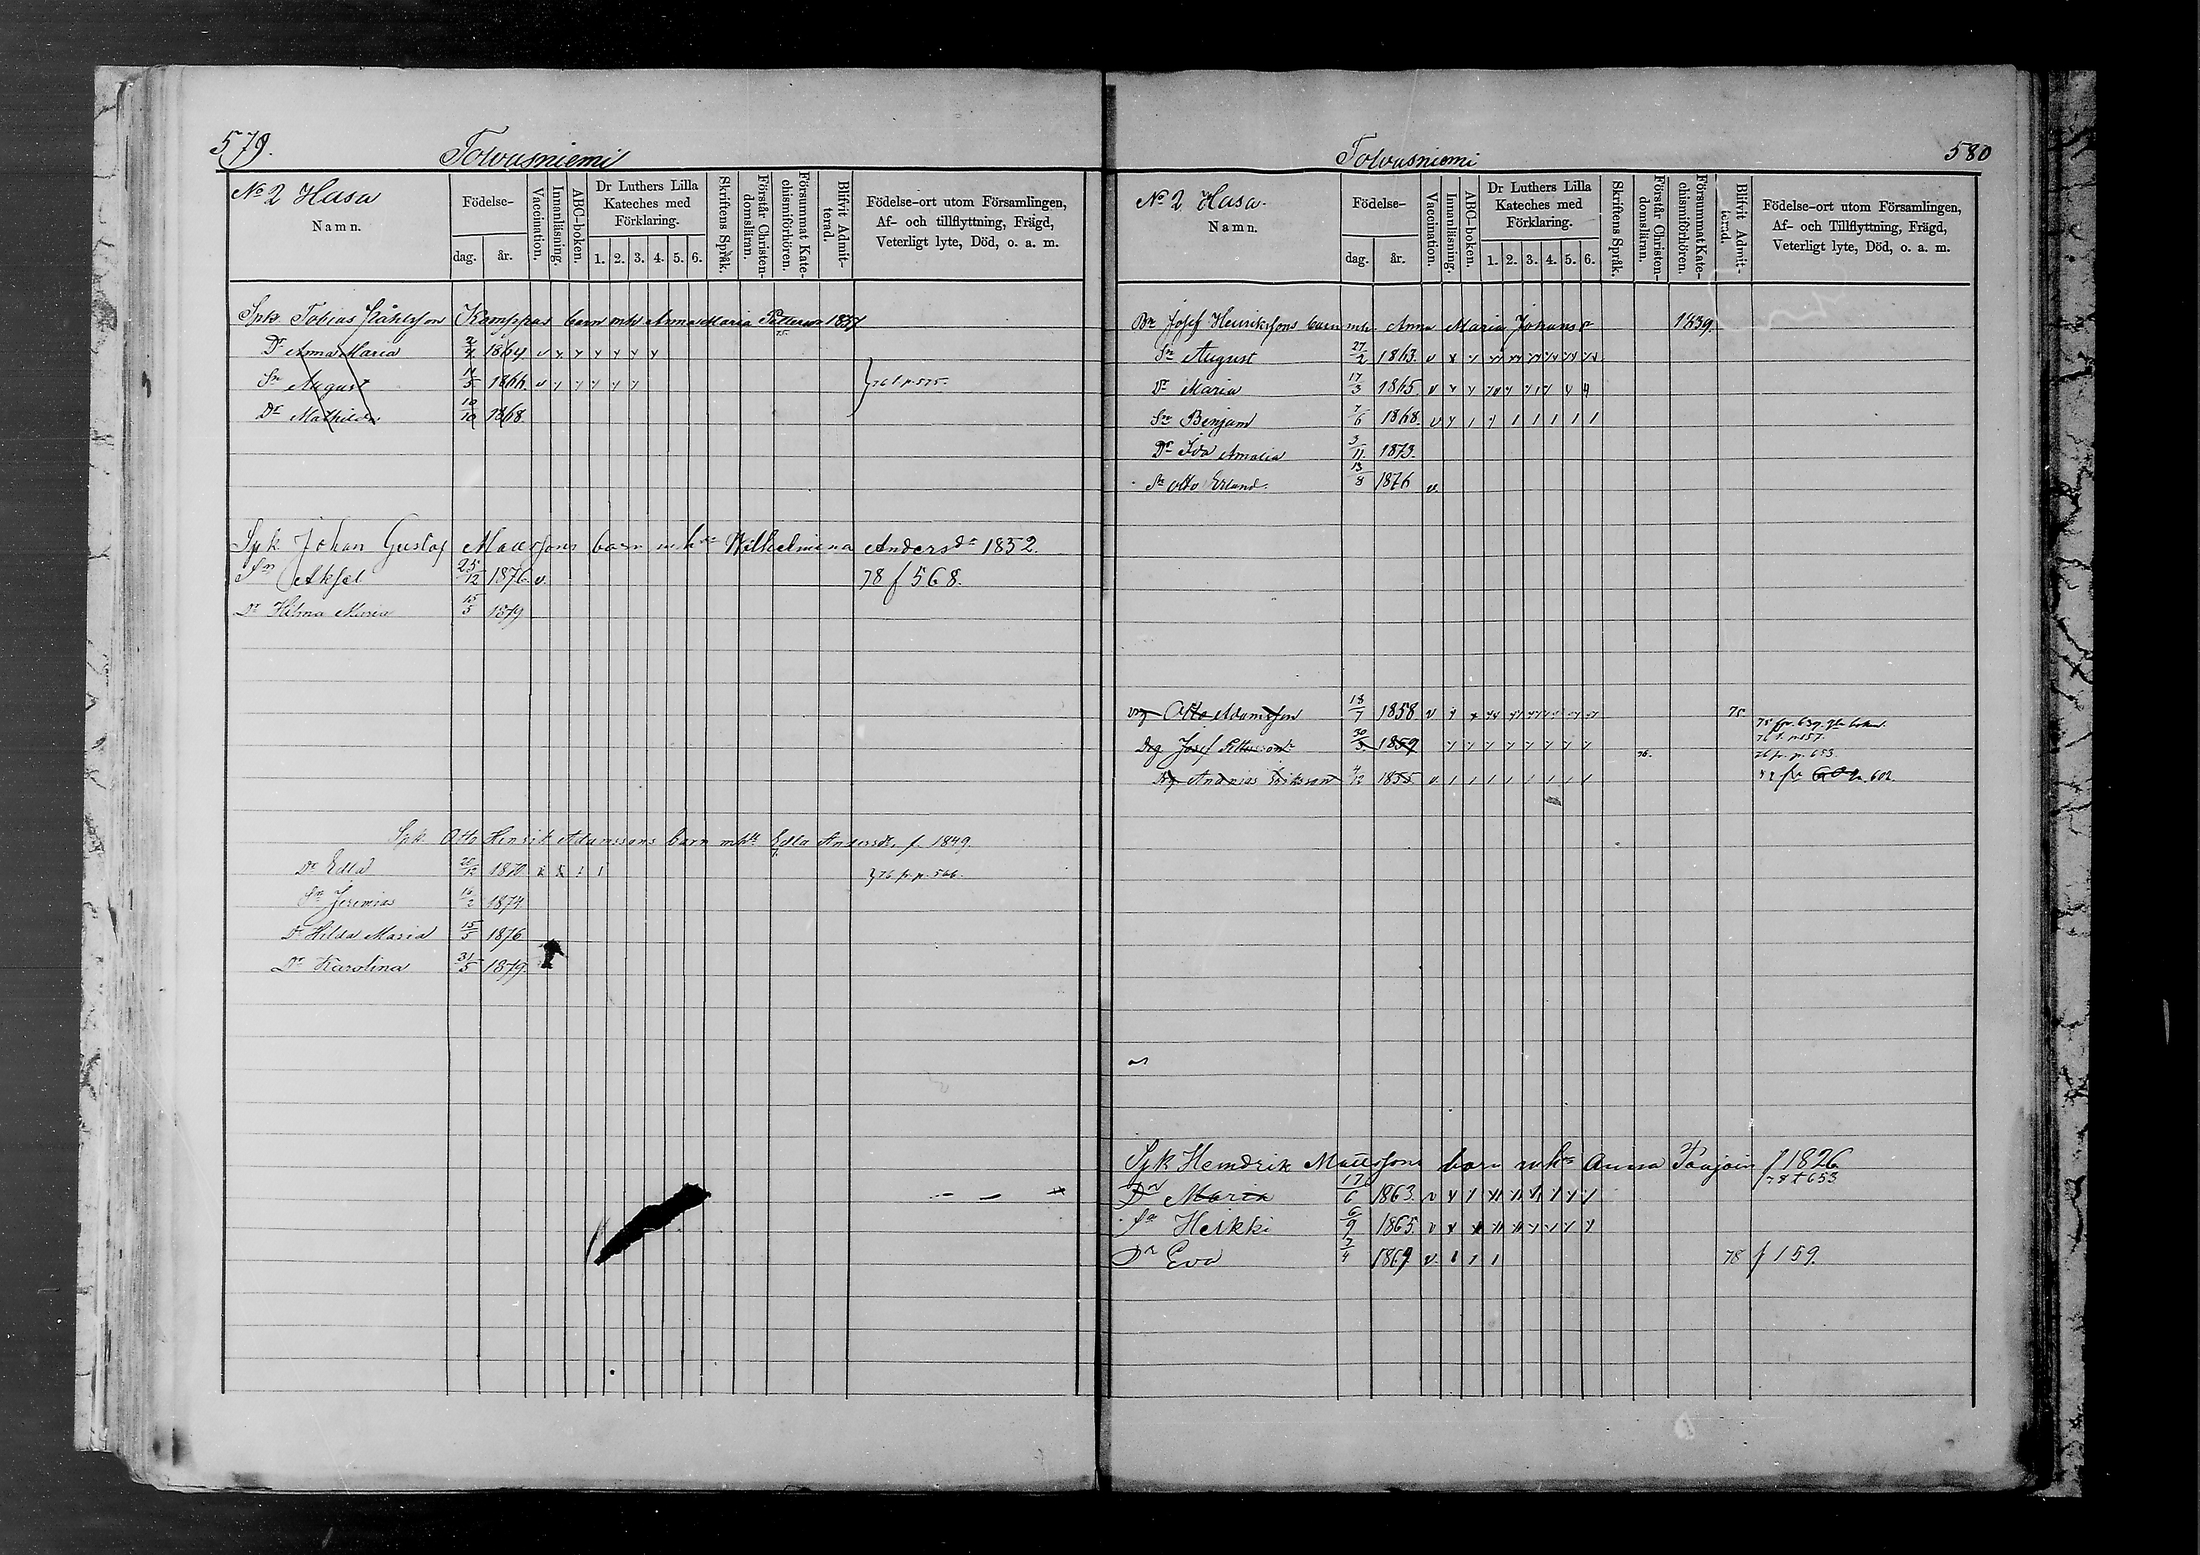 579.
Tolvasniemi
No 2 Hasa
Namn.
Födelse-
dag.
år.
Vaccination.
Innanläsning.
ABC-boken.
Dr Luthers Lilla
Kateches med
Förklaring.
1. 2. 3. 4. 5. 6.
Skriftens Språk.
Förstår Christen-
domsläran.
Försummat Kate-
chismiförhören.
Blifvit Admit-
terad.
Födelse-ort utom Församlingen,
Af- och tillflyttning, Frägd,
Veterligt lyte, Död, o. a. m.
Spk Tobias barn mh Anna Maria 1837
Dr Anna Maria 1864 v
Sn August 1866 v
76 f p. 575.
Dr Mathilda 10/10 1868.
Spk Johan Gustaf Mattssons barn mhu Wilhelmina Andersdr 1852.
Sn Aksel 25/12 1876 v. 78 f 568.
Dr Hilma Maria 15/5 1879
Spk Otto Henrik Adamssons barn mh Edla Andersdr. f. 1849
Dr Edla 20/12 1870 x x 1 1
76 fr. p. 566.
Sn Jeremias 16/2 1874
Dr Hilda Maria 15/5 1876
Dr Karolina 31/5 1879
580
Tolvasniemi
No 2 Hasa.
Namn.
Födelse-
dag.
år.
Vaccination.
Innanläsning.
ABC-boken.
Dr Luthers Lilla
Kateches med
Förklaring.
1. 2. 3. 4. 5. 6.
Skriftens Språk.
Förstår Christen-
domsläran.
Försummat Kate-
chismiförhören.
Blifvit Admit-
terad.
Födelse-ort utom Församlingen,
Af- och Tillflyttning, Frägd,
Veterligt lyte, Död, o. a. m.
Josef Henrikssons barn mh. Anna Maria Johansdr 1839.
Sn August 27/2 1863. v
Dr Maria 17/3 1865. v
Sn Benjam 7/6 1868. v
Dr Ida Amalia 3/11 1873.
Sn Otto Erland. 13/8 1876 v.
Otto Adamsson 18/7 1858 v 75
75 fr. 639.
76 t. p. 157.
Drg Josef 30/3 1859 76.
76 fr. p. 653
Drg Ananias Eriksson 4/12 1855 v. 602
Spk Hendrik Mattssons barn mhu Anna f 1826
Dr Maria 17/6 1863. v 78 t 653
Sn Heikki 6/9 1865. v
Dr Eva 3/4 1869. v. 1 1 1 78 f 159.